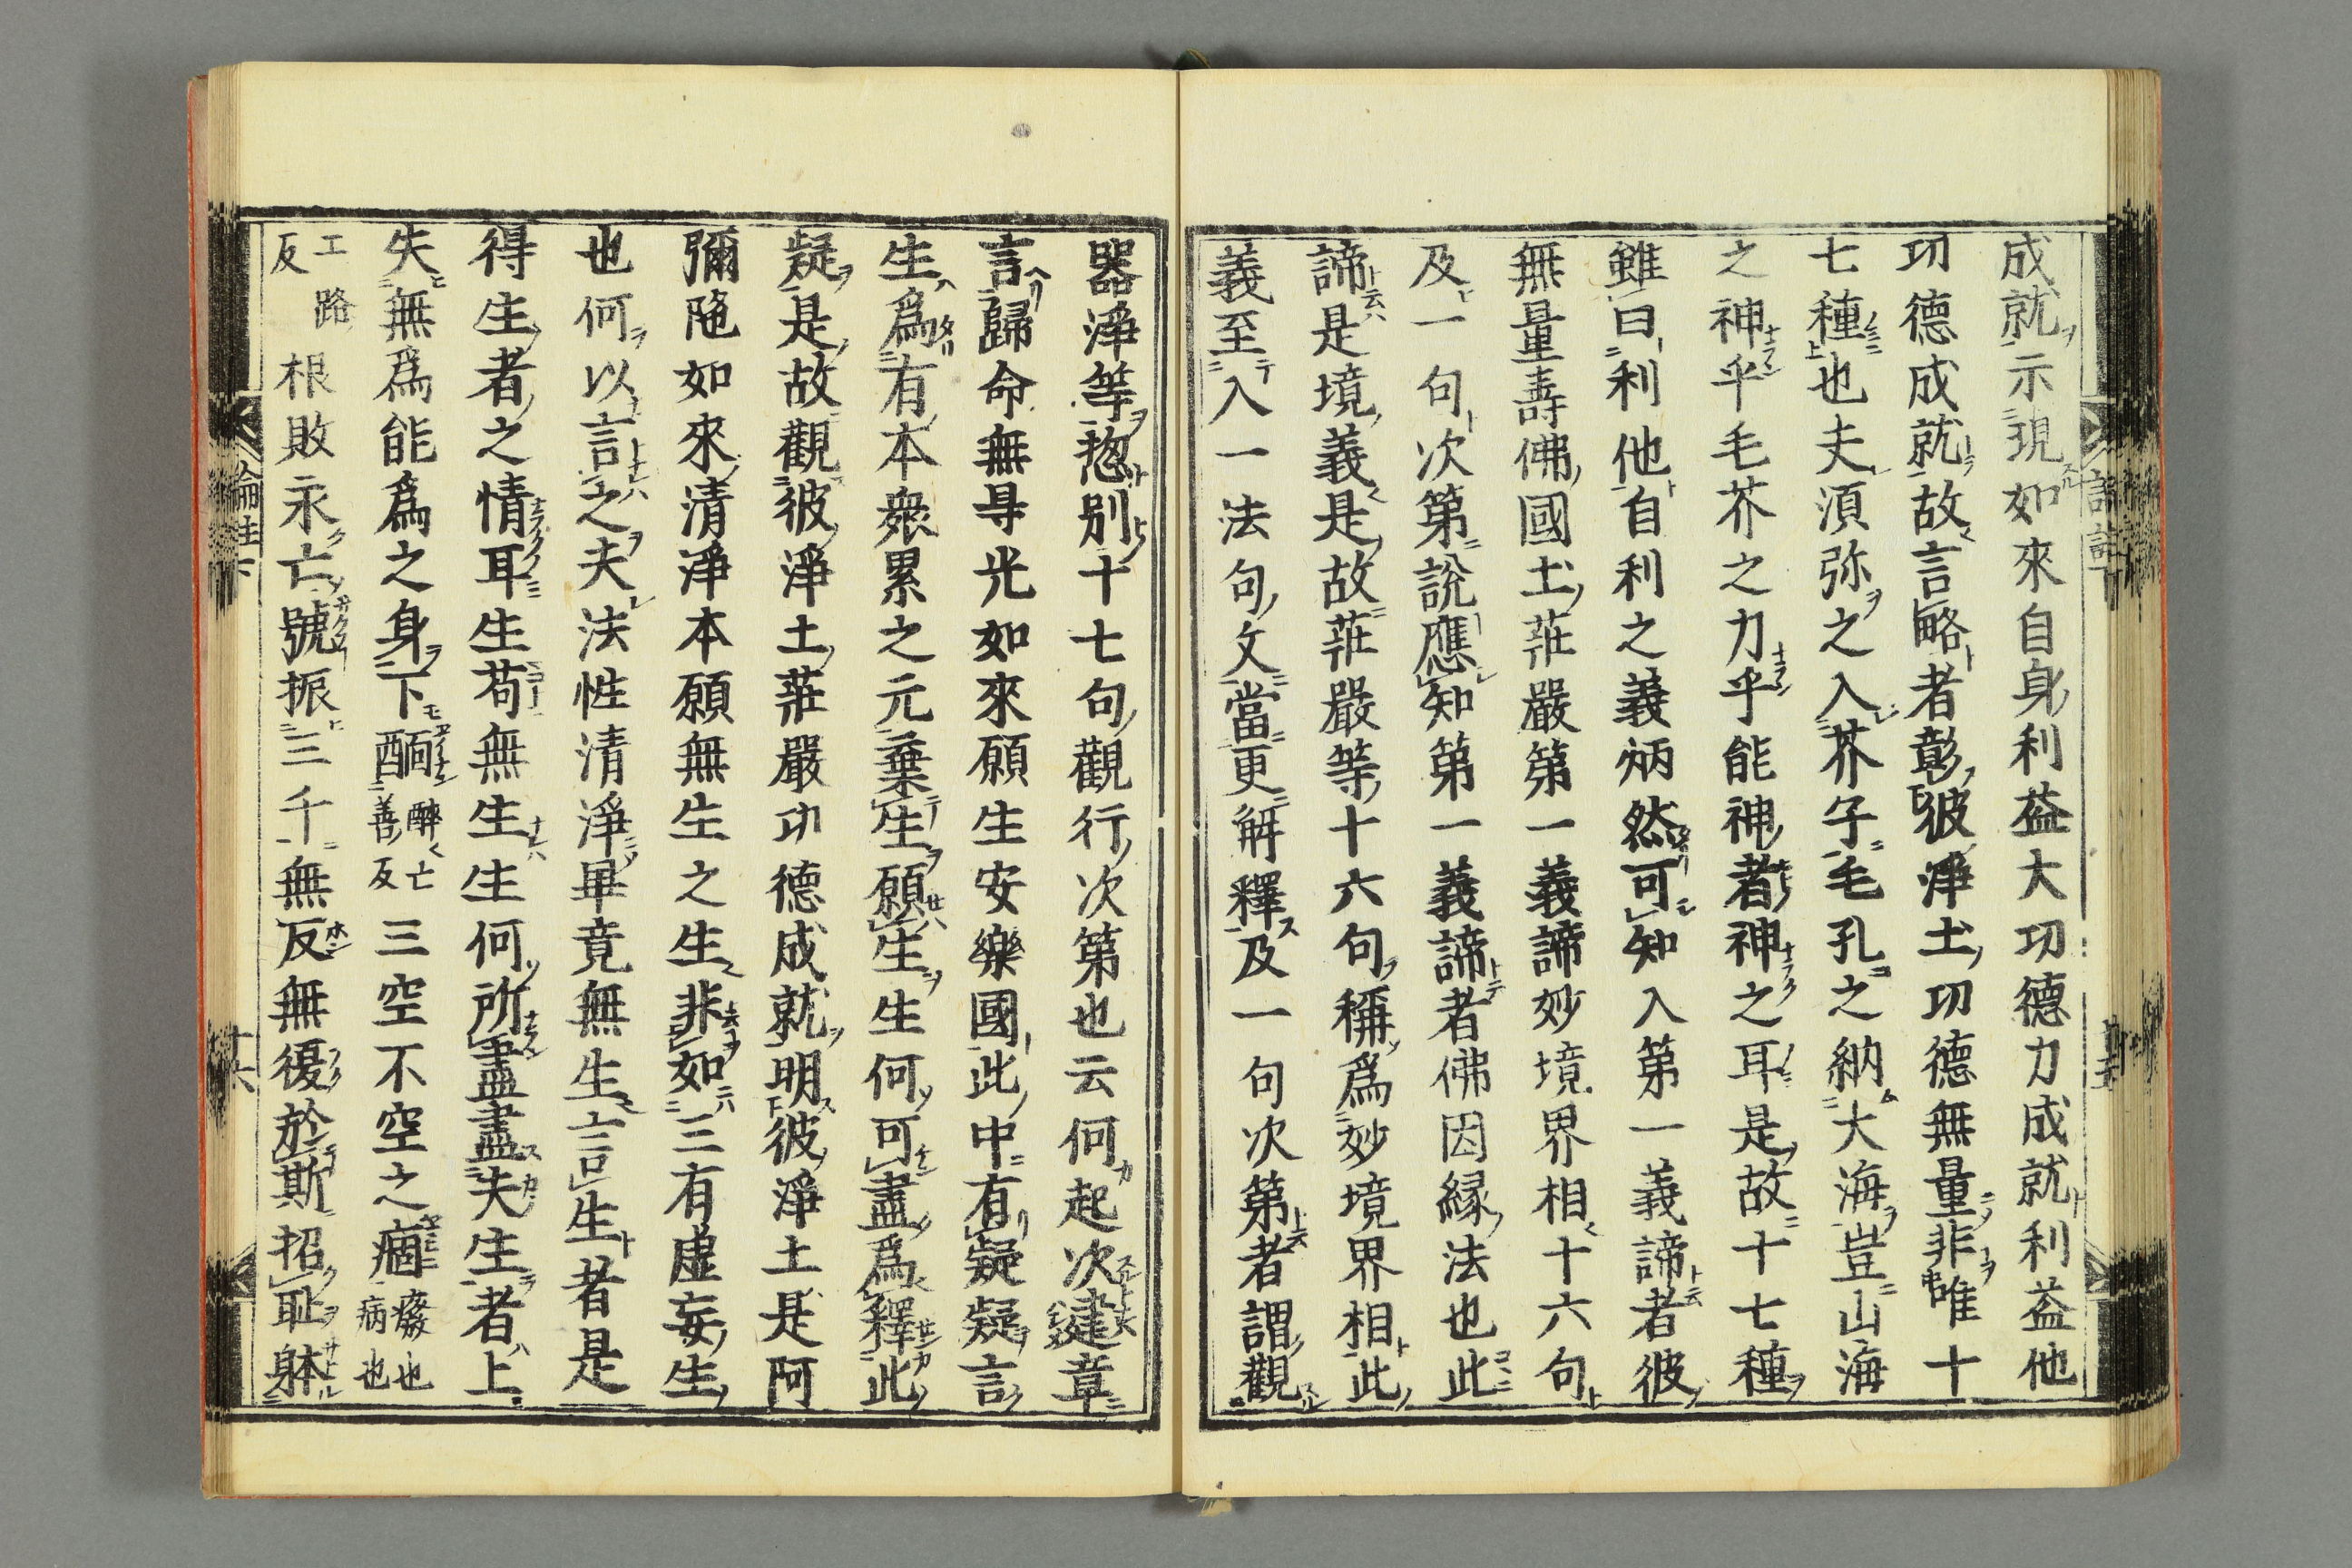 成就示現如來自身利益大功德力成就利益他
功德成就故言略者彰彼淨土功德無量非唯十
七種也夫湏弥之入芥子毛孔之納大海豈山海
之神乎毛芥之力乎能神者神之耳是故十七種
雖曰利他自利之義炳然可知入第一義諦者彼
無量壽佛國土莊嚴第一義諦妙境界相十六句
及一句次第說應知第一義諦者佛因緣法也此
諦是境義是故莊嚴等十六句稱爲妙境界相此
義至入一法句文當更解釋及一句次第者謂觀
器淨等揔別十七句觀行次第也云何起次建章
言歸命無㝵光如來願生安樂國此中有疑疑言
生爲有本衆累之元棄生願生生何可盡爲釋此
疑是故觀彼淨土莊嚴功德成就明彼淨土是阿
彌陁如來清淨本願無生之生非如三有虛妄生
也何以言之夫法性清淨畢竟無生言生者是
得生者之情耳生苟無生生何所盡盡夫生者上
失無爲能爲之身下酾醉亡善反三空不空之痼癈也病也
工路反根敗永亡號振三千無反無復於斯招耻躰
論註下
十六